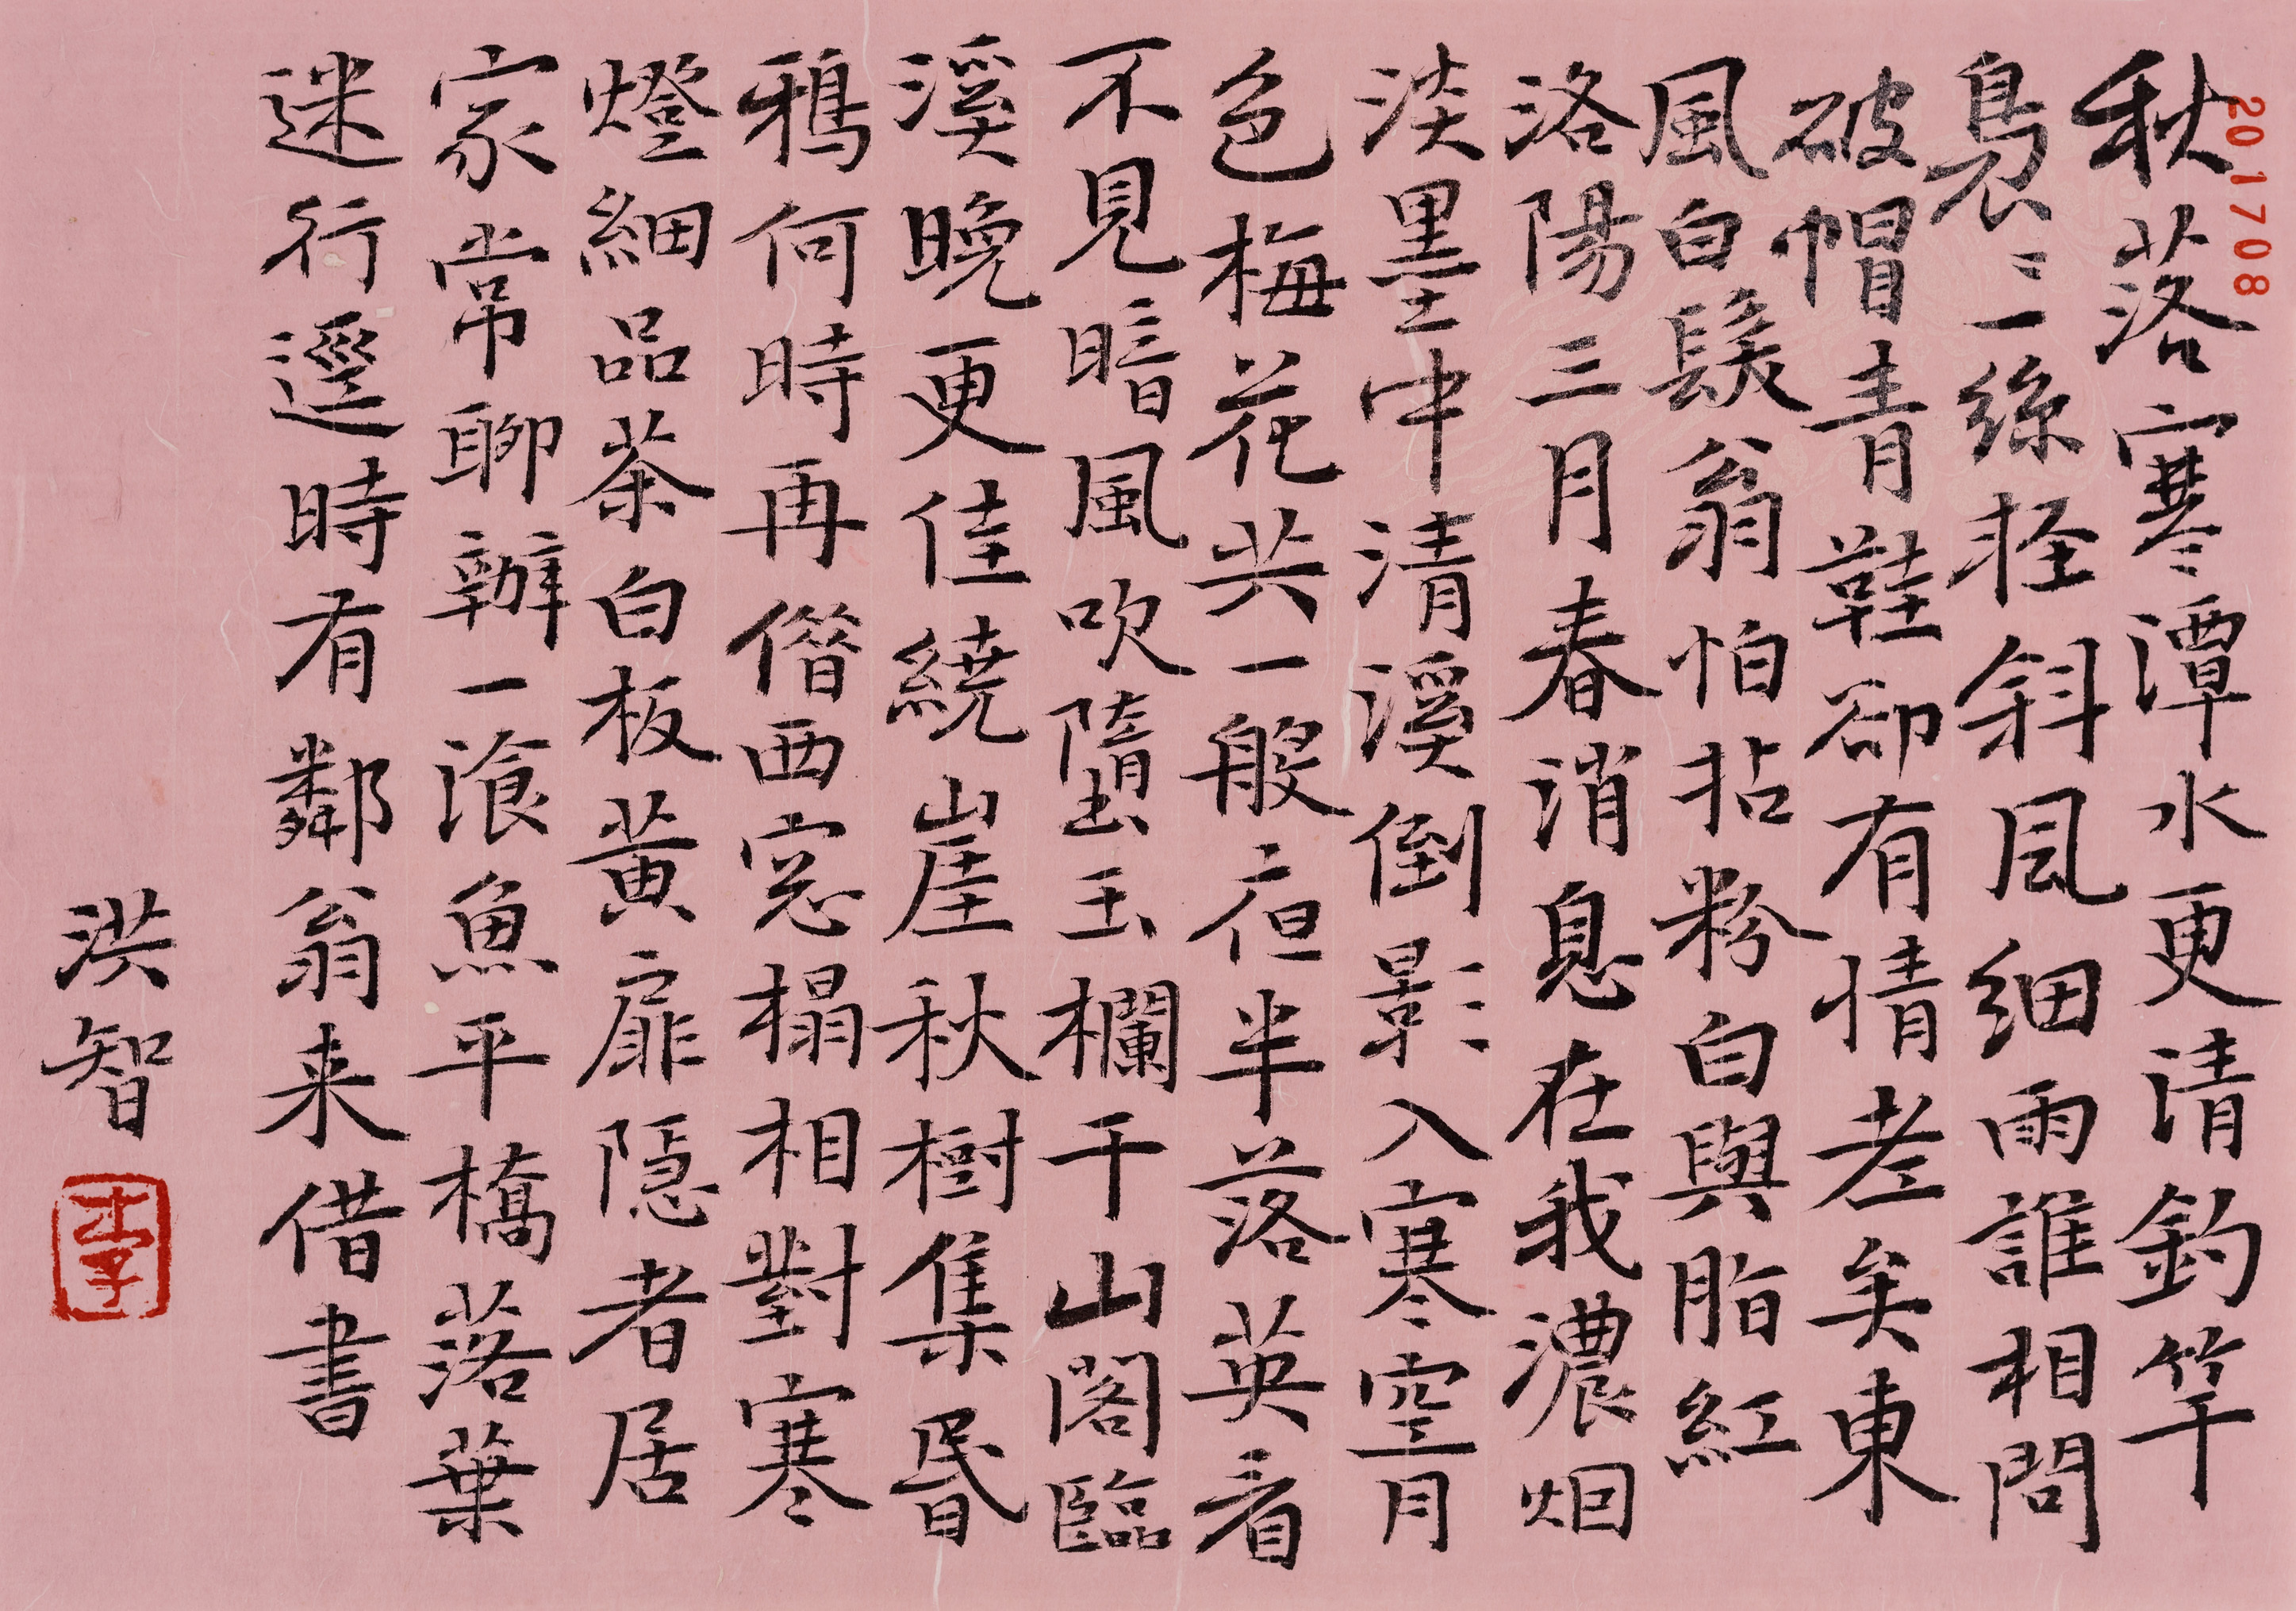 秋落寒潭水更清釣竿
裊〻一絲輕斜風细雨誰相問
破帽青鞋卻有情老矣東
風白髮翁怕拈粉白與脂紅
洛陽三月春消息在我濃烟
淡墨中清溪倒影入寒空月
色梅花共一般夜半落英看
不見暗風吹墮玉欄干山閣臨
溪晚更佳繞崖秋樹集昏
鴉何時再借西窓榻相對寒
燈細品茶白板黃扉隱者居
家常聊辦一飡魚平橋落葉
迷行逕時有鄰翁来借書
洪智
李
201708